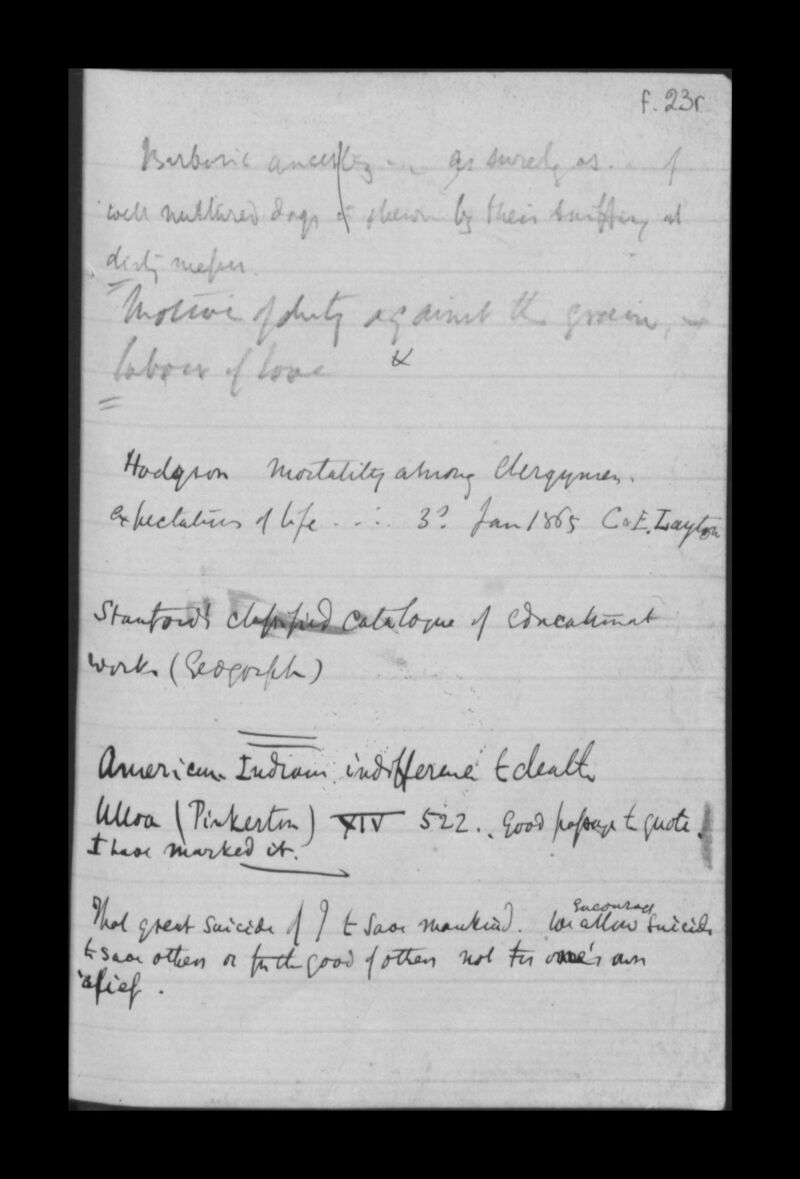 f. 23r
Barbaric ancestry ... as surely as .. of
well nurtured dogs is shewn by their sniffing at
dirty messes.
Motive of duty against the grain,
labour of love x
Hodgson Mortality among Clergymen.
expectations of life .... 3s. Jan 1865 C & E. Layton
Stanford's classified catalogue of educational
works (Geograph)
American Indians indifference to death
Ulloa (Pinkerton) XIV 522.. Good passage to quote.
I have marked it.
That great suicide of J to save mankind. We allow encourage suicide
to save others or for the good of others not for one's own
relief.